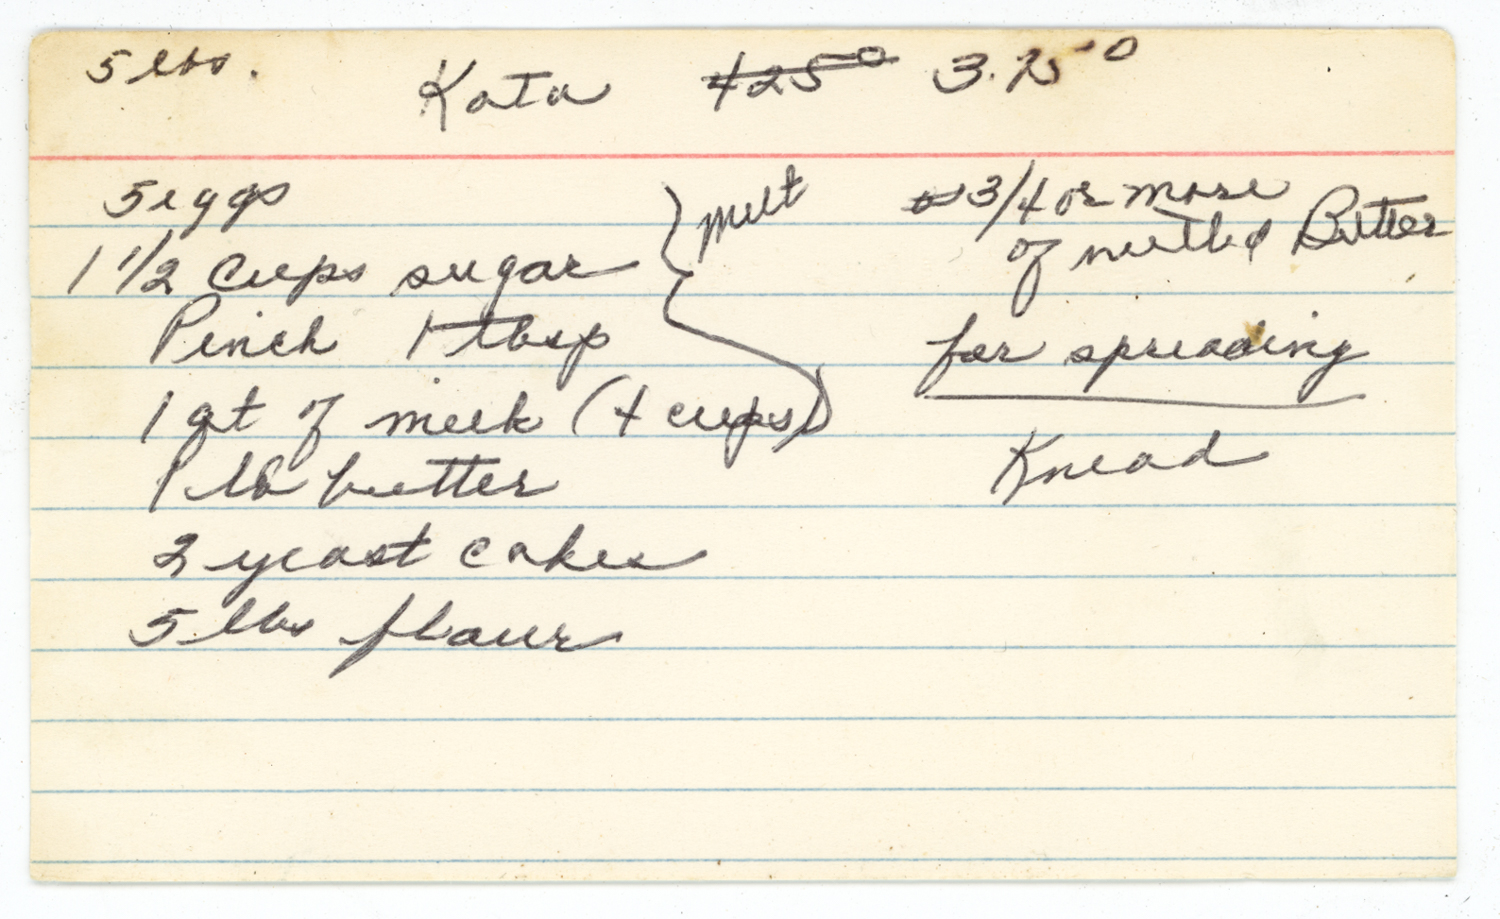 5 lbs. Kata 425° 3.75°
5 eggs
1 1/2 cups sugar
Pinch 1 tbsp
1 qt of milk (4 cups)
1 lb butter
2 yeast cakes
5 lbs flour
melt
3/4 or more
of melted Butter
for spreading
Knead